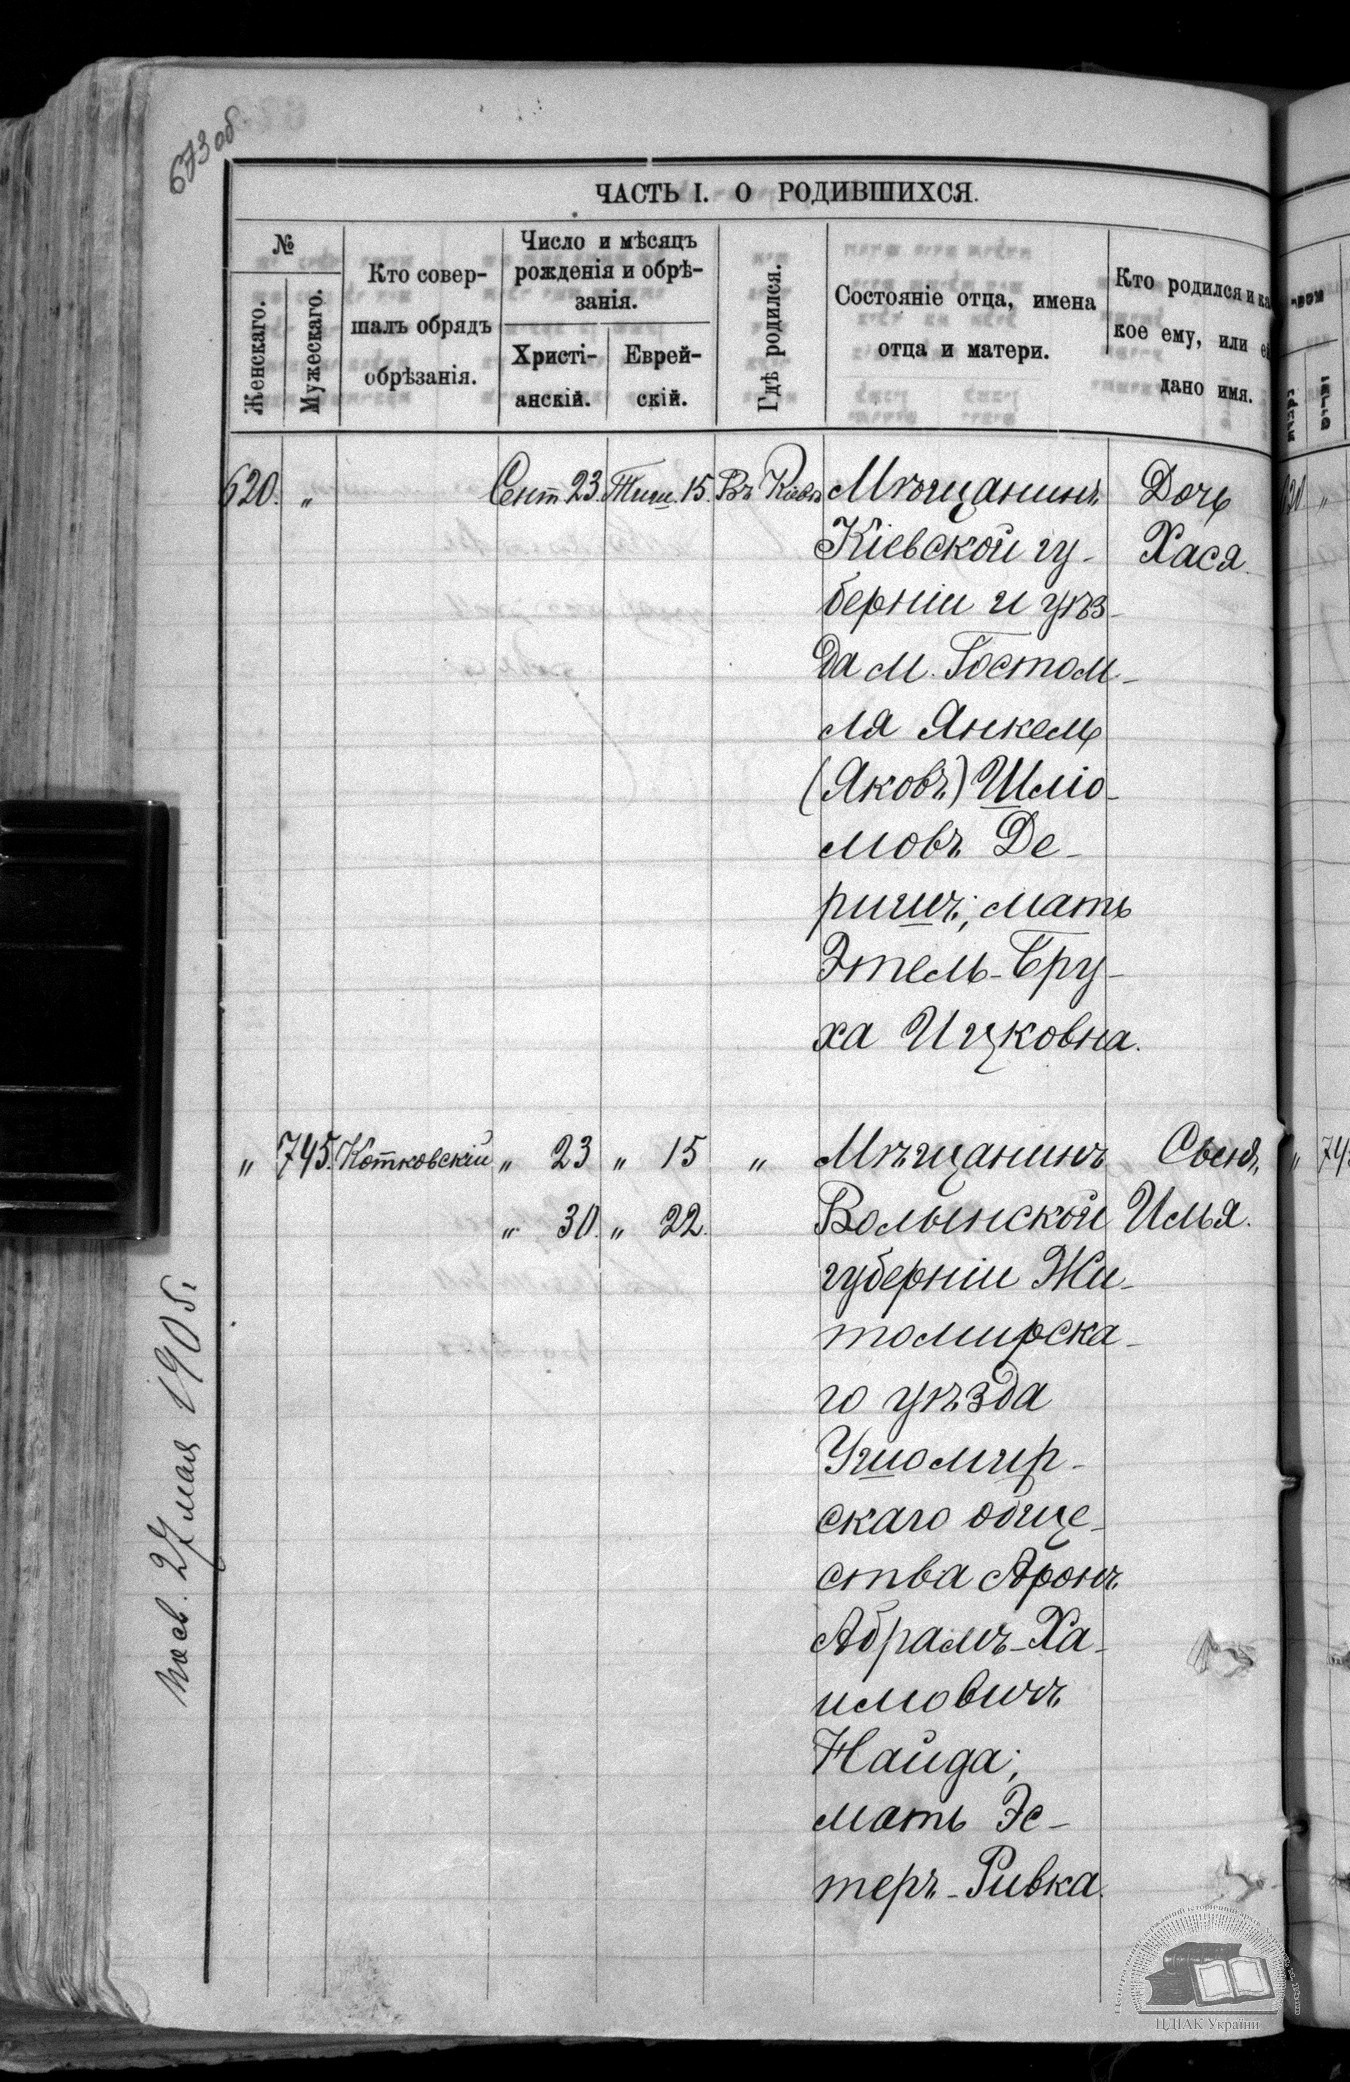 673 об
ЧАСТЬ I. О РОДИВШИХСЯ.
№
Женскаго.
Мужескаго.
Кто совер-
шалъ обрядъ
обрѣзанія.
Число и мѣсяцъ
рожденія и обрѣ-
занія.
Христі-
анскій.
Еврей-
скій.
Гдѣ родился.
Состояніе отца, имена
отца и матери.
Кто родился и ка
кое ему, или е
дано имя.
620. " Сент 23. Тиш. 15. Въ Кіевѣ Мѣщанинъ Дочь
Кіевской гу- Хася.
берніи и уѣз-
да м. Гостом-
ля Янкель
(Яковъ) Шліо-
мовъ Де-
ришъ; мать
Этель-Бру-
ха Ицковна.
" 745. Котковскій " 23 " 15 " Мѣщанинъ Сынъ,
" 30. " 22. Волынской Илья.
губерніи Жи-
томирска-
го уѣзда
Ушомир-
скаго обще-
ства Аронъ
Абрамъ-Ха-
имовичъ
Найда;
мать Эс-
теръ-Ривка.
27 мая 1905 г.
ЦДІАК України